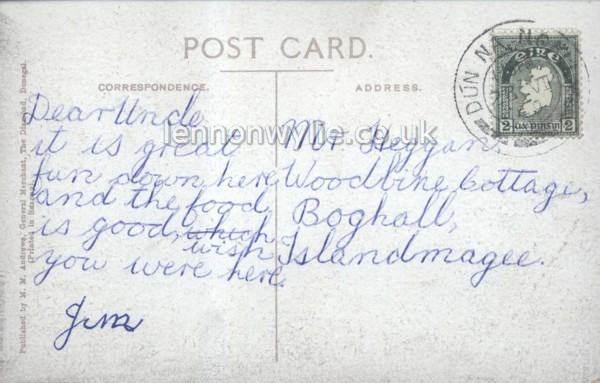 POST CARD.
CORRESPONDENCE.
ADDRESS.
Dear Uncle
it is great
fun down here
and the food
is good, which
wish
you were here.
Jim
Mr Heggan,
Woodbine Cottage,
Boghall,
Islandmagee.
lennonwylie.co.uk
DÚN NA N
EIRE
2
2
Published by M. M. Andrews, General Merchant, The Diamond, Donegal.